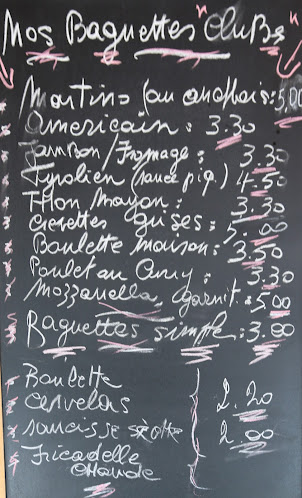 Nos Baguettes "Clubs"
Martino (ou anchois : 5,00
Americain : 3.30
Jambon/Fromage : 3.30
Tyrolien (sauce piq.) 4.50
Thon Mayon : 3.30
Crevettes Grises : 5.00
Boulette maison : 3.50
Poulet au Curry : 3.30
Mozzarella, Garnit : 5,00
Baguettes simple : 3.00
Boulette
Cervelas 2.20
saucisse sèche 2.00
Fricadelle
chaude